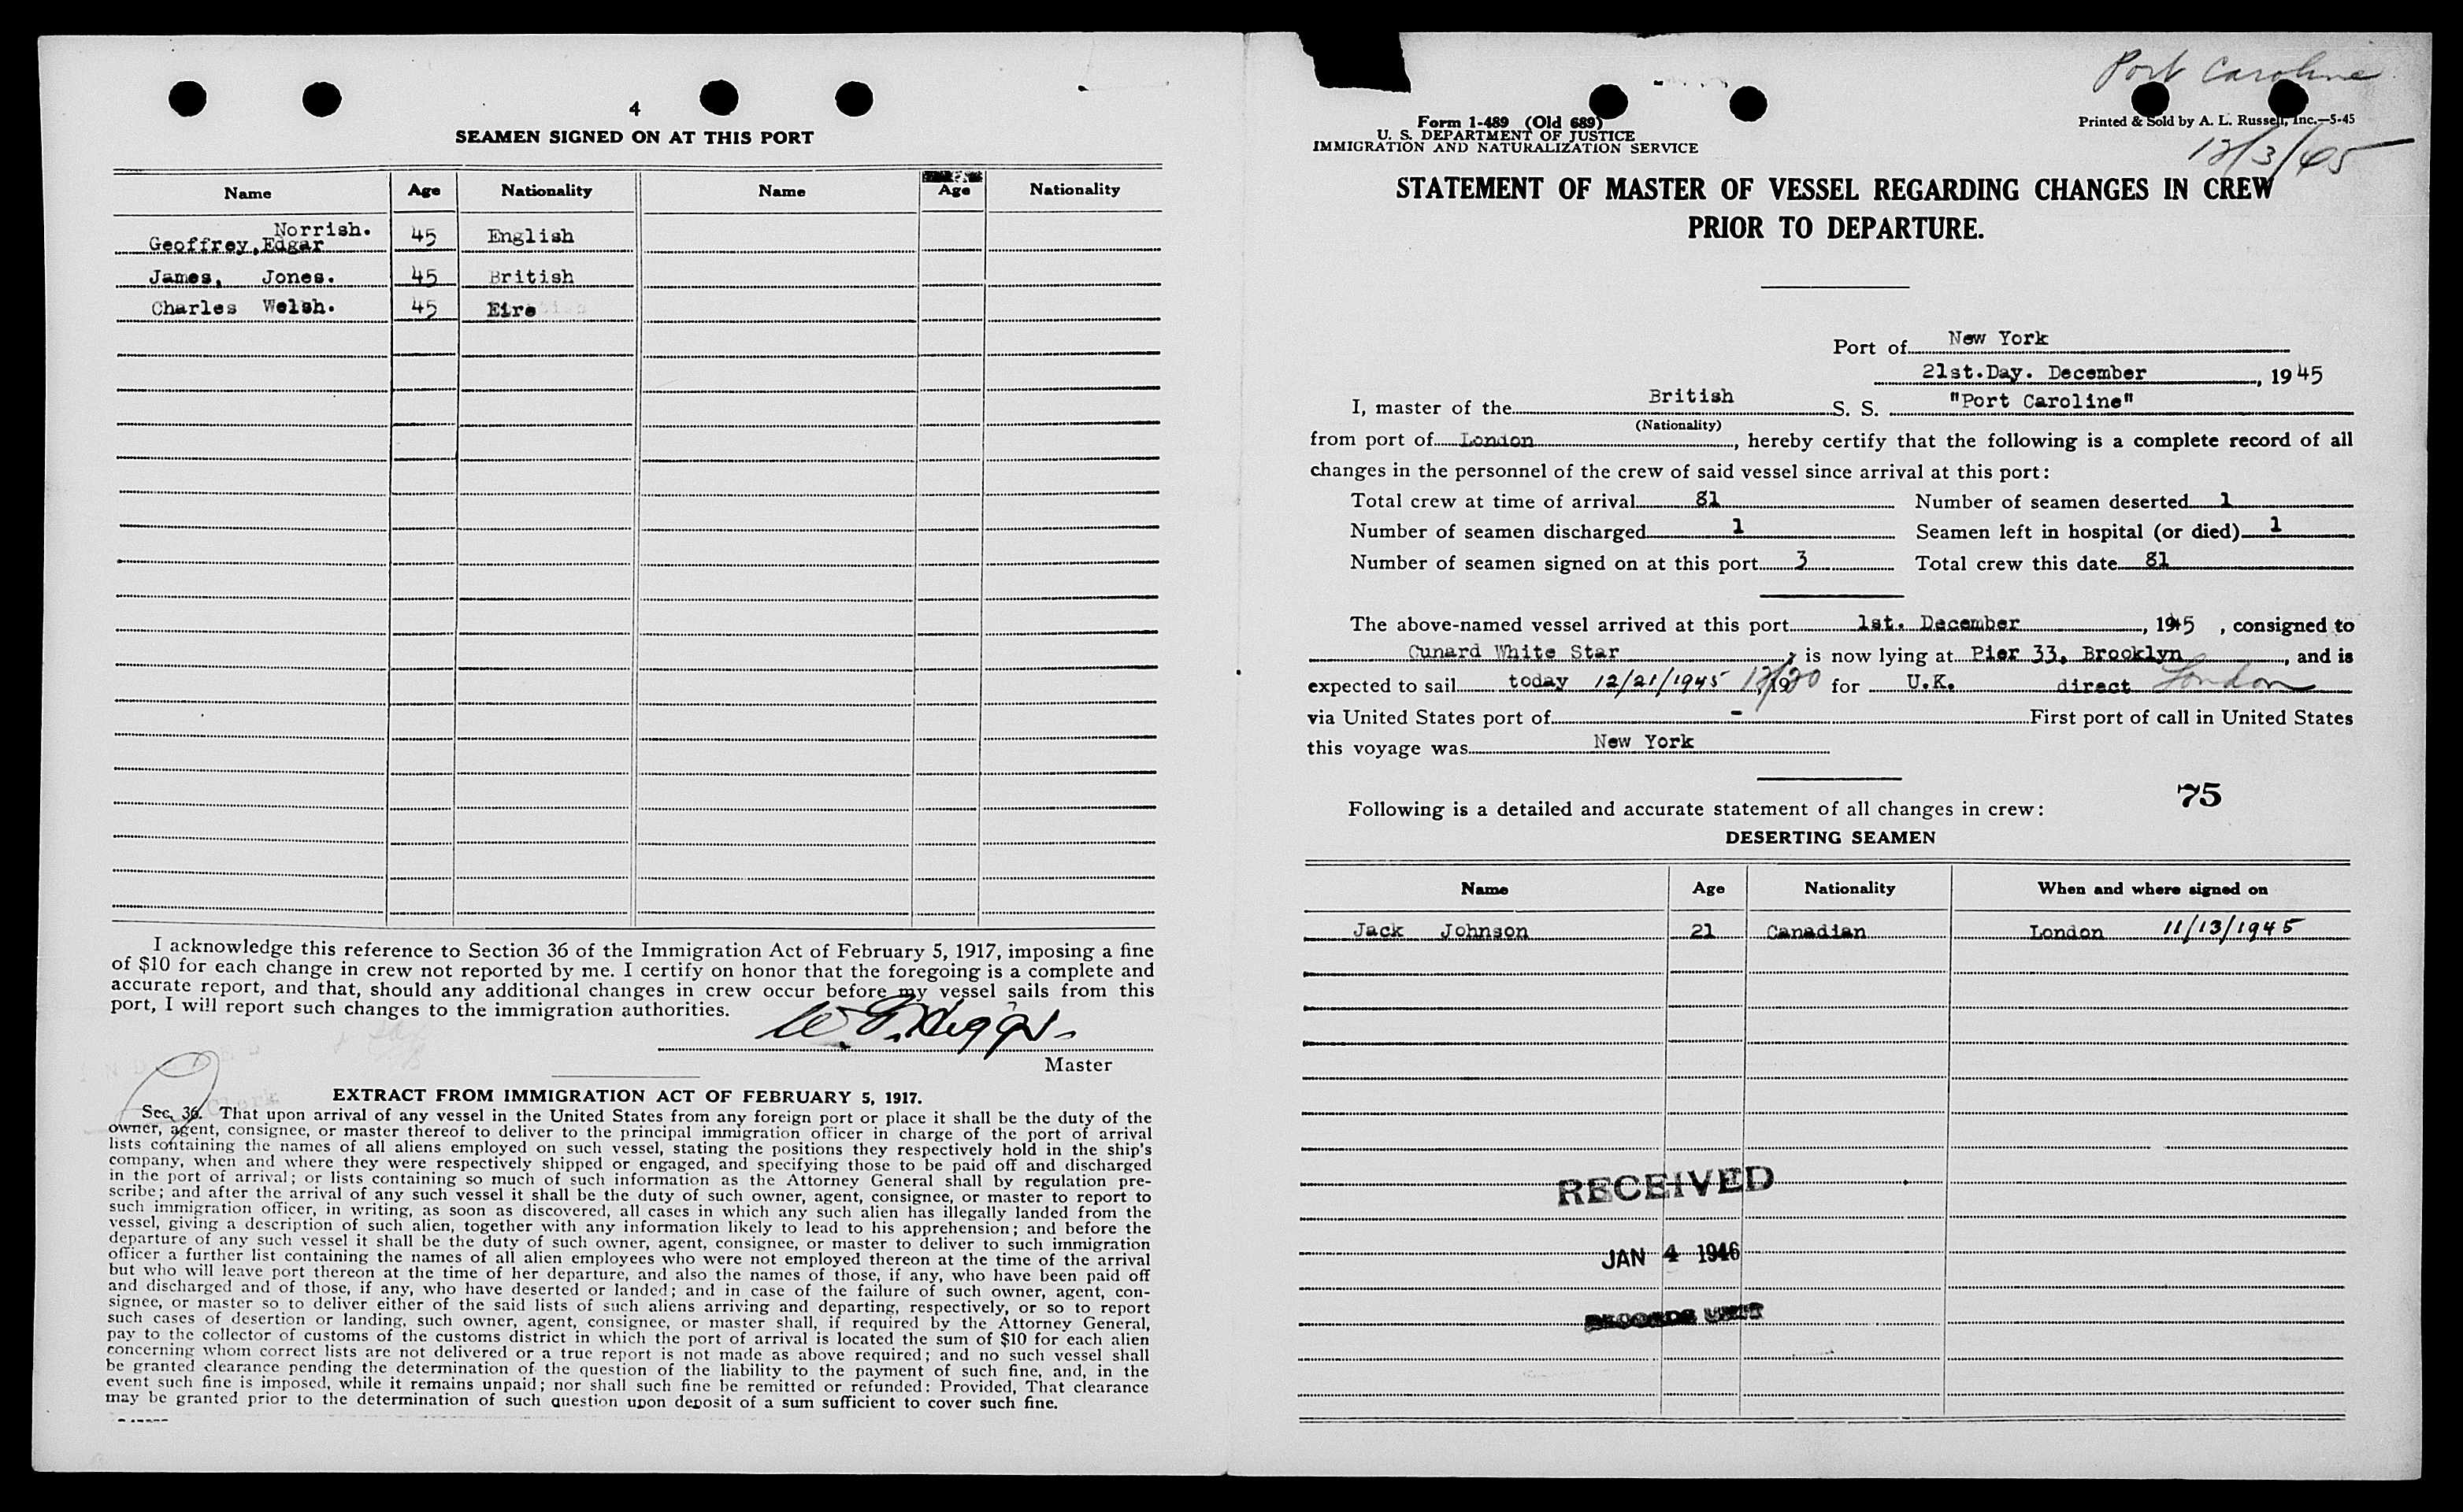 4
SEAMEN SIGNED ON AT THIS PORT
Name Age Nationality Name Age Nationality
Norrish.
Geoffrey, Edgar 45 English
James, Jones. 45 British
Charles Welsh. 45 Eire
I acknowledge this reference to Section 36 of the Immigration Act of February 5, 1917, imposing a fine
of $10 for each change in crew not reported by me. I certify on honor that the foregoing is a complete and
accurate report, and that, should any additional changes in crew occur before my vessel sails from this
port, I will report such changes to the immigration authorities.
Master
EXTRACT FROM IMMIGRATION ACT OF FEBRUARY 5, 1917.
Sec. 36. That upon arrival of any vessel in the United States from any foreign port or place it shall be the duty of the
owner, agent, consignee, or master thereof to deliver to the principal immigration officer in charge of the port of arrival
lists containing the names of all aliens employed on such vessel, stating the positions they respectively hold in the ship's
company, when and where they were respectively shipped or engaged, and specifying those to be paid off and discharged
in the port of arrival; or lists containing so much of such information as the Attorney General shall by regulation pre-
scribe; and after the arrival of any such vessel it shall be the duty of such owner, agent, consignee, or master to report to
such immigration officer, in writing, as soon as discovered, all cases in which any such alien has illegally landed from the
vessel, giving a description of such alien, together with any information likely to lead to his apprehension; and before the
departure of any such vessel it shall be the duty of such owner, agent, consignee, or master to deliver to such immigration
officer a further list containing the names of all alien employees who were not employed thereon at the time of the arrival
but who will leave port thereon at the time of her departure, and also the names of those, if any, who have been paid off
and discharged and of those, if any, who have deserted or landed; and in case of the failure of such owner, agent, con-
signee, or master so to deliver either of the said lists of such aliens arriving and departing, respectively, or so to report
such cases of desertion or landing, such owner, agent, consignee, or master shall, if required by the Attorney General,
pay to the collector of customs of the customs district in which the port of arrival is located the sum of $10 for each alien
concerning whom correct lists are not delivered or a true report is not made as above required; and no such vessel shall
be granted clearance pending the determination of the question of the liability to the payment of such fine, and, in the
event such fine is imposed, while it remains unpaid; nor shall such fine be remitted or refunded: Provided, That clearance
may be granted prior to the determination of such question upon deposit of a sum sufficient to cover such fine.
Port Caroline
Form 1-489 (Old 689)
U. S. DEPARTMENT OF JUSTICE
IMMIGRATION AND NATURALIZATION SERVICE
Printed & Sold by A. L. Russell, Inc.—5-45
12/3/45
STATEMENT OF MASTER OF VESSEL REGARDING CHANGES IN CREW
PRIOR TO DEPARTURE.
Port of New York
21st.Day. December, 1945
I, master of the British S. S. "Port Caroline"
(Nationality)
from port of London, hereby certify that the following is a complete record of all
changes in the personnel of the crew of said vessel since arrival at this port:
Total crew at time of arrival 81 Number of seamen deserted 1
Number of seamen discharged 1 Seamen left in hospital (or died) 1
Number of seamen signed on at this port 3 Total crew this date 81
The above-named vessel arrived at this port 1st. December, 1945, consigned to
Cunard White Star, is now lying at Pier 33, Brooklyn, and is
expected to sail today 12/21/1945 12/20, 19 for U.K. direct London
via United States port of - First port of call in United States
this voyage was New York
75
Following is a detailed and accurate statement of all changes in crew:
DESERTING SEAMEN
Name Age Nationality When and where signed on
Jack Johnson 21 Canadian London 11/13/1945
RECEIVED
JAN 4 1946
RECORDS UNIT